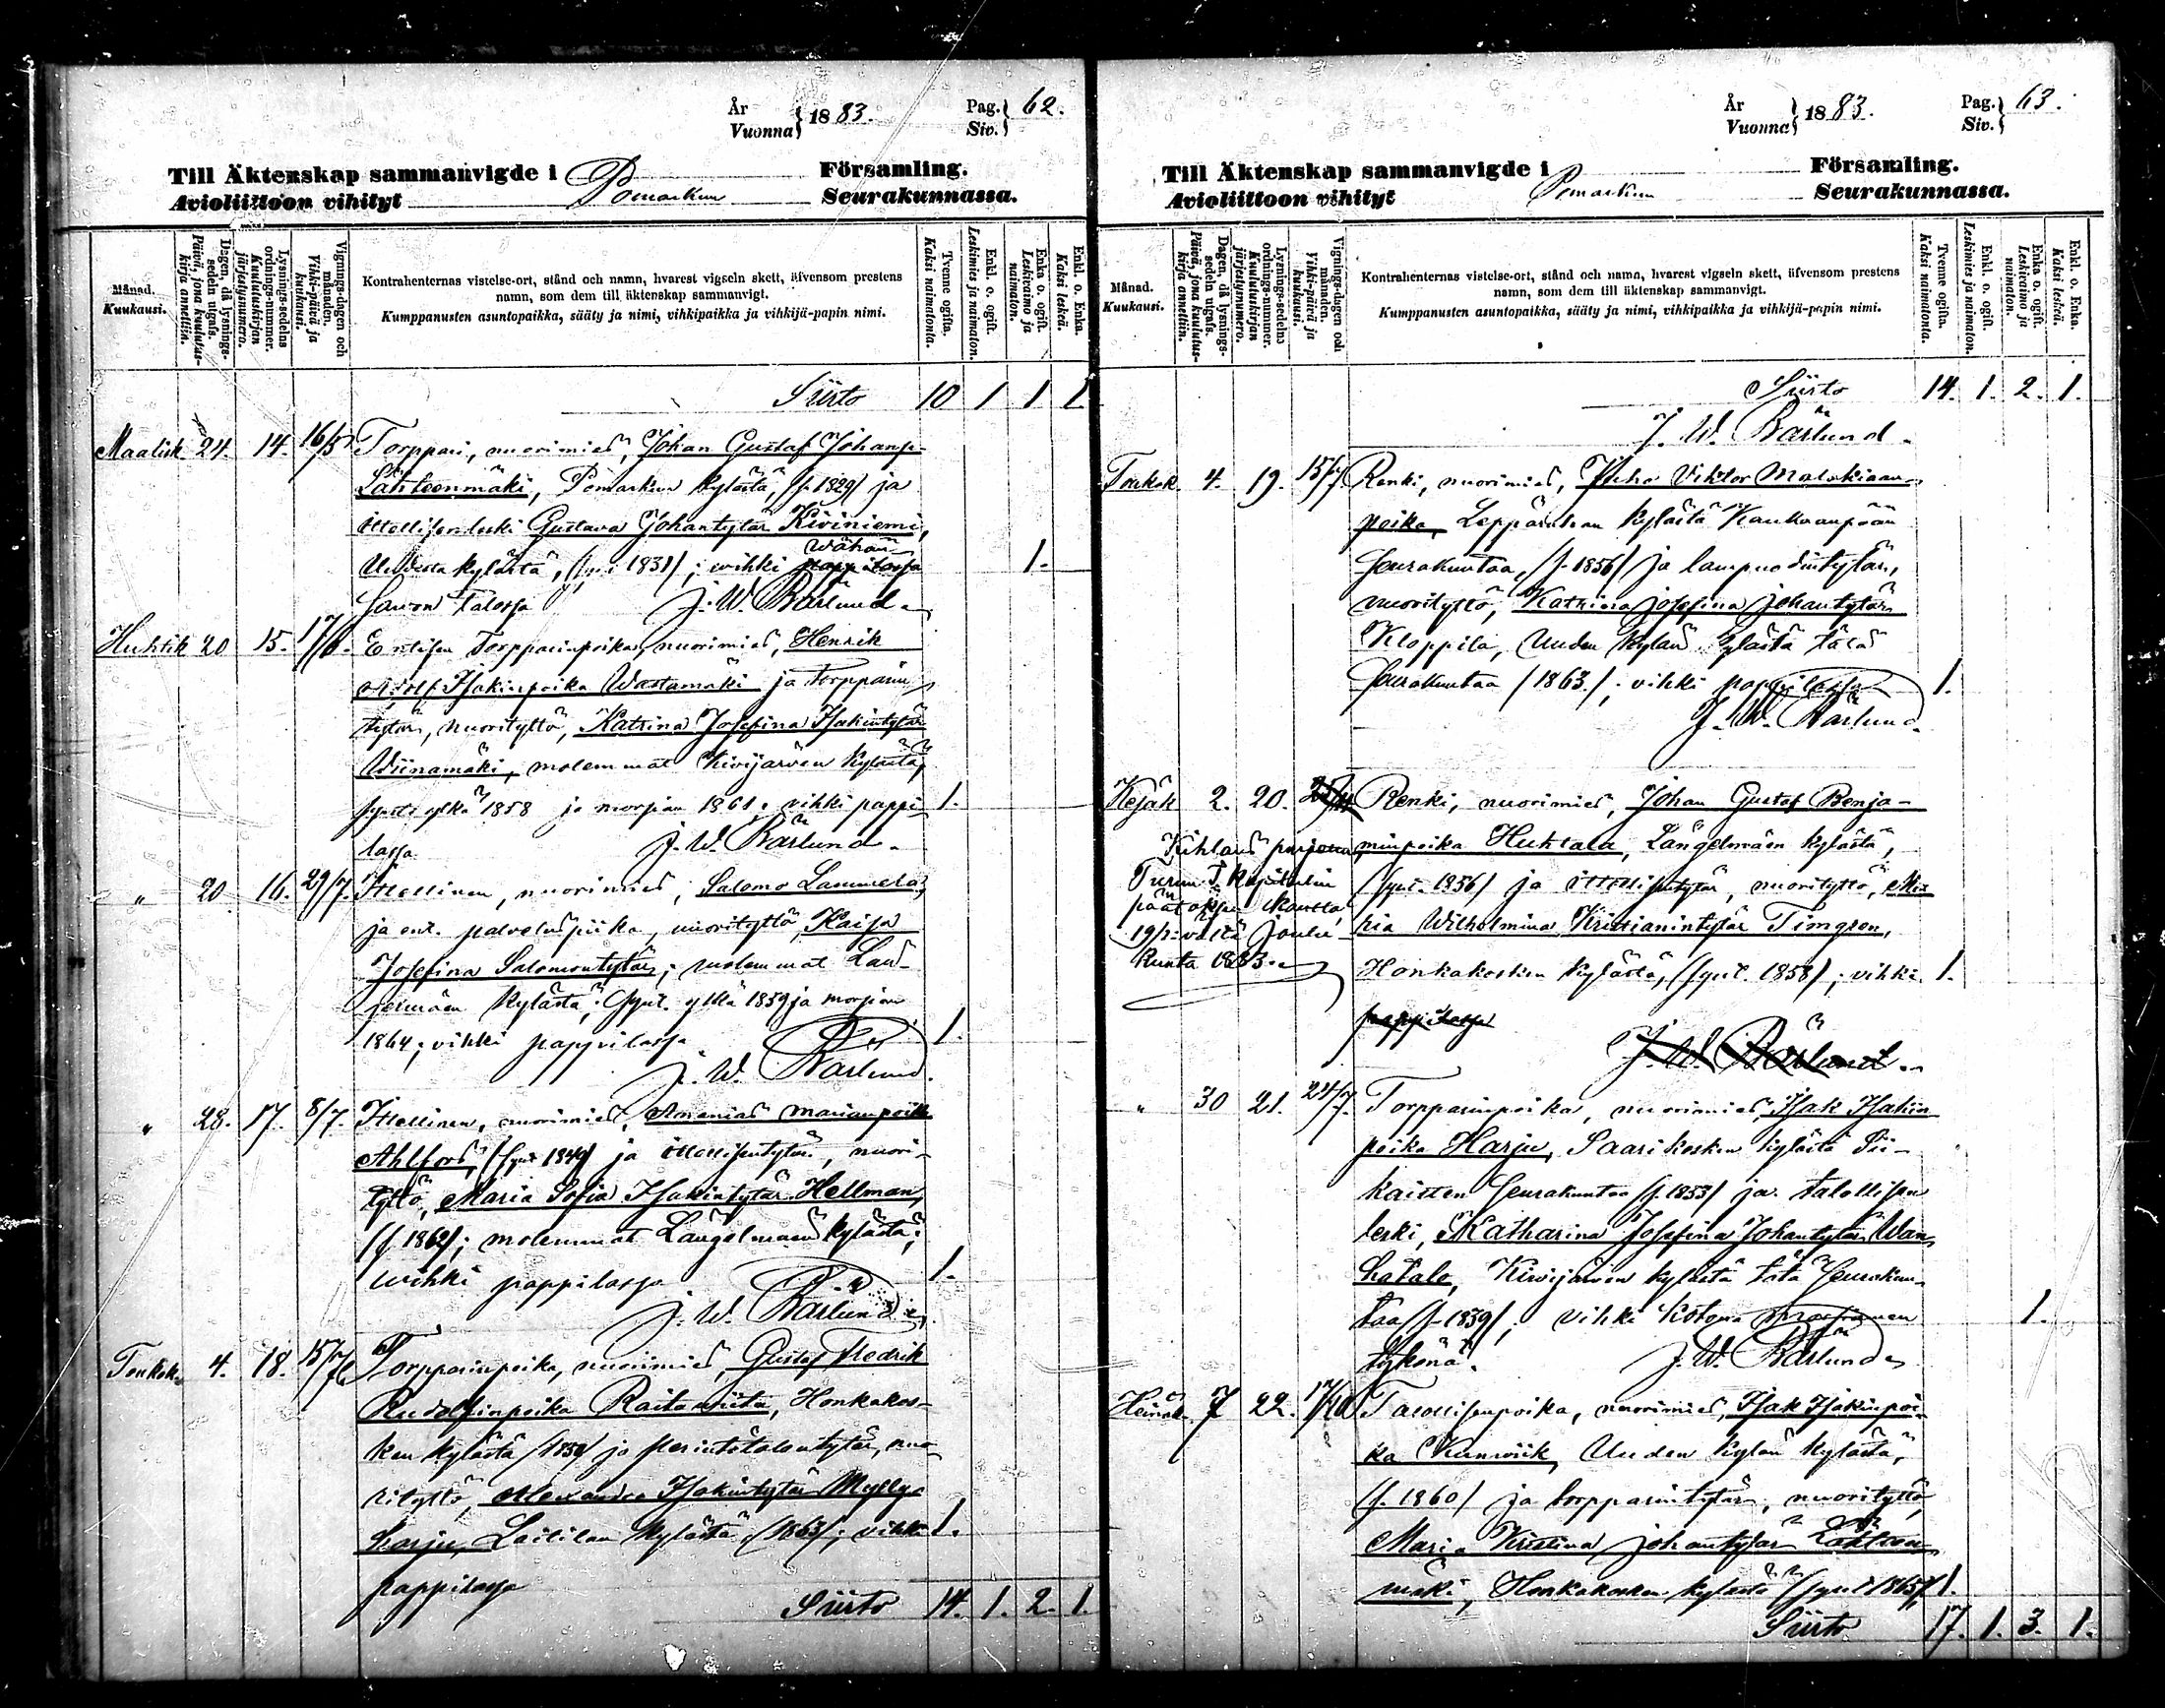 År
Vuonna
1883.
Pag.
Siv.
62.
Till Äktenskap sammanvigde i Församling.
Avioliittoon vihityt Pomarkun Seurakunnassa.
Månad.
Kuukausi.
Dagen, då lysnings-
sedeln utgafs.
Päivä, jona kuulutus-
kirja annettiin.
Lysnings-sedelns
ordnings-nummer.
Kuulutuskirjan
järjestysnumero.
Vignings-dagen och
månaden.
Vihki-päivä ja
kuukausi.
Kontrahenternas vistelse-ort, stånd och namn, hvarest vigseln skett, äfvensom prestens
namn, som dem till äktenskap sammanvigt.
Kumppanusten asuntopaikka, sääty ja nimi, vihkipaikka ja vihkijä-papin nimi.
Tvenne ogifta.
Kaksi naimatonta.
Enkl. o. ogift.
Leskimies ja naimaton.
Enka o. ogift.
Leskivaimo ja
naimaton.
Enkl. o. Enka.
Kaksi leskeä.
Siirto 10 1 1 1
Maalisk. 24. 14. Torppari, nuorimies, Johan Gustaf Johanp.
Lähteenmäki, Pomarkun kylästä, (s. 1829) ja
ittellisenleski Gustava Johantytär Kiviniemi,
Wähän
Uudesta kylästä, 1831); wihki pappilassa 1.
Sawon talossa J. W. Bärlund.
Huhtik 20 15. 17/6. Entisen Torpparinpoika, nuorimies, Henrik
Adolf Isakinpoika Wastamäki ja Torpparin
tytär, nuorityttö, Katrina Josefina Isakintytär
Wiinamäki, molemmat Kivijärven kylästä,
1858 ja morsian 1861, vihki pappi- 1.
lassa J. W. Bärlund.
" 20. 16. 29/7. Itellinen, nuorimies, Salomo Lammela,
ja ent. palveluspiika, nuorityttö, Kaisa
Josefina Salomontytär; molemmat
kylästä, synt. ylkä 1859 ja morsian
1864; vihki pappilassa 1.
J. W. Bärlund.
" 28. 17. 8/7. Itellinen, nuorimies, Ananias Marianpoika
Ahlfors, (synt 1849) ja ittellisentytär, nuori-
tyttö, Maria Sofia Isakintytär Hellman,
(s. 1862); molemmat Längelmäen kylästä;
wihki pappilassa 1.
J. W. Bärlund
Toukok. 4. 18. 15/7 Torpparinpoika, nuorimies, Gustaf Fredrik
Rudolfinpoika Raitaniitu, Honkakos-
ken kylästä ja perintötalontytär, nuo-
rityttö, Alexandra Isakintytär Mylly-
harju, Laililan kylästä (1863); vihki 1.
pappilassa
Siirto 14. 1. 2. 1.
År
Vuonna
1883.
Pag.
Siv.
63.
Till Äktenskap sammanvigde i Församling.
Avioliittoon vihityt Pomarkun Seurakunnassa.
Månad.
Kuukausi.
Dagen, då lysnings-
sedeln utgafs.
Päivä, jona kuulutus-
kirja annettiin.
Lysnings-sedelns
ordnings-nummer.
Kuulutuskirjan
järjestysnumero.
Vignings-dagen och
månaden.
Vihki-päivä ja
kuukausi.
Kontrahenternas vistelse-ort, stånd och namn, hvarest vigseln skett, äfvensom prestens
namn, som dem till äktenskap sammanvigt.
Kumppanusten asuntopaikka, sääty ja nimi, vihkipaikka ja vihkijä-papin nimi.
Tvenne ogifta.
Kaksi naimatonta.
Enkl. o. ogift.
Leskimies ja naimaton.
Enka o. ogift.
Leskivaimo ja
naimaton.
Enkl. o. Enka.
Kaksi leskeä.
Siirto 14. 1. 2. 1.
J. W. Bärlund.
Toukok. 4. 19. 15/7. Renki, nuorimies, Juho Viktor Malakiaan
poika, kylästä Kankaanpään
Seurakuntaa, (s. 1856) ja lampuodintytär,
nuorityttö, Katrina Josefina Johantytär
Kloppila, Uuden kylän kylästä tätä
Seurakuntaa (1863); vihki pappilassa 1.
J. W. Bärlund.
Kesäk 2. 20. Renki, nuorimies, Johan Gustaf Benja-
minpoika Huhtala, Längelmäen kylästä,
(synt. 1856) ja ittellisentytär, nuorityttö, Ma-
ria Wilhelmina Kristianintytär Timgren,
Honkakosken kylästä, (synt. 1858); vihki 1.
pappilassa
J. W. Bärlund.
Kihlaus purjettu
Turun T. Kapitulin
päätöksen kautta
19 p:vältä Joulu-
kuuta 1883.
" 30 21. 24/7. Torpparinpoika, nuorimies, Isak Isakin
poika Harju, Saarikosken kylästä Sii-
kaisten Seurakuntaa (s. 1853) ja talollisen
leski, Katharina Josefina Johantytär Wan-
hatalo, Kivijärven kylästä tätä Seurakun-
taa (s. 1839); vihki kotona morsiamen 1.
tykönä. J. W. Bärlund
Heinäk. 7 22. Talollisenpoika, nuorimies, Isak Isakinpoi-
ka Kunwiik, Uuden kylän kylästä,
(s. 1860) ja torpparintytär, nuorityttö
Maria Kristina Johantytär Lähteen-
mäki, Honkakosken kylästä (synt 1865), 1.
Siirto 17. 1. 3. 1.